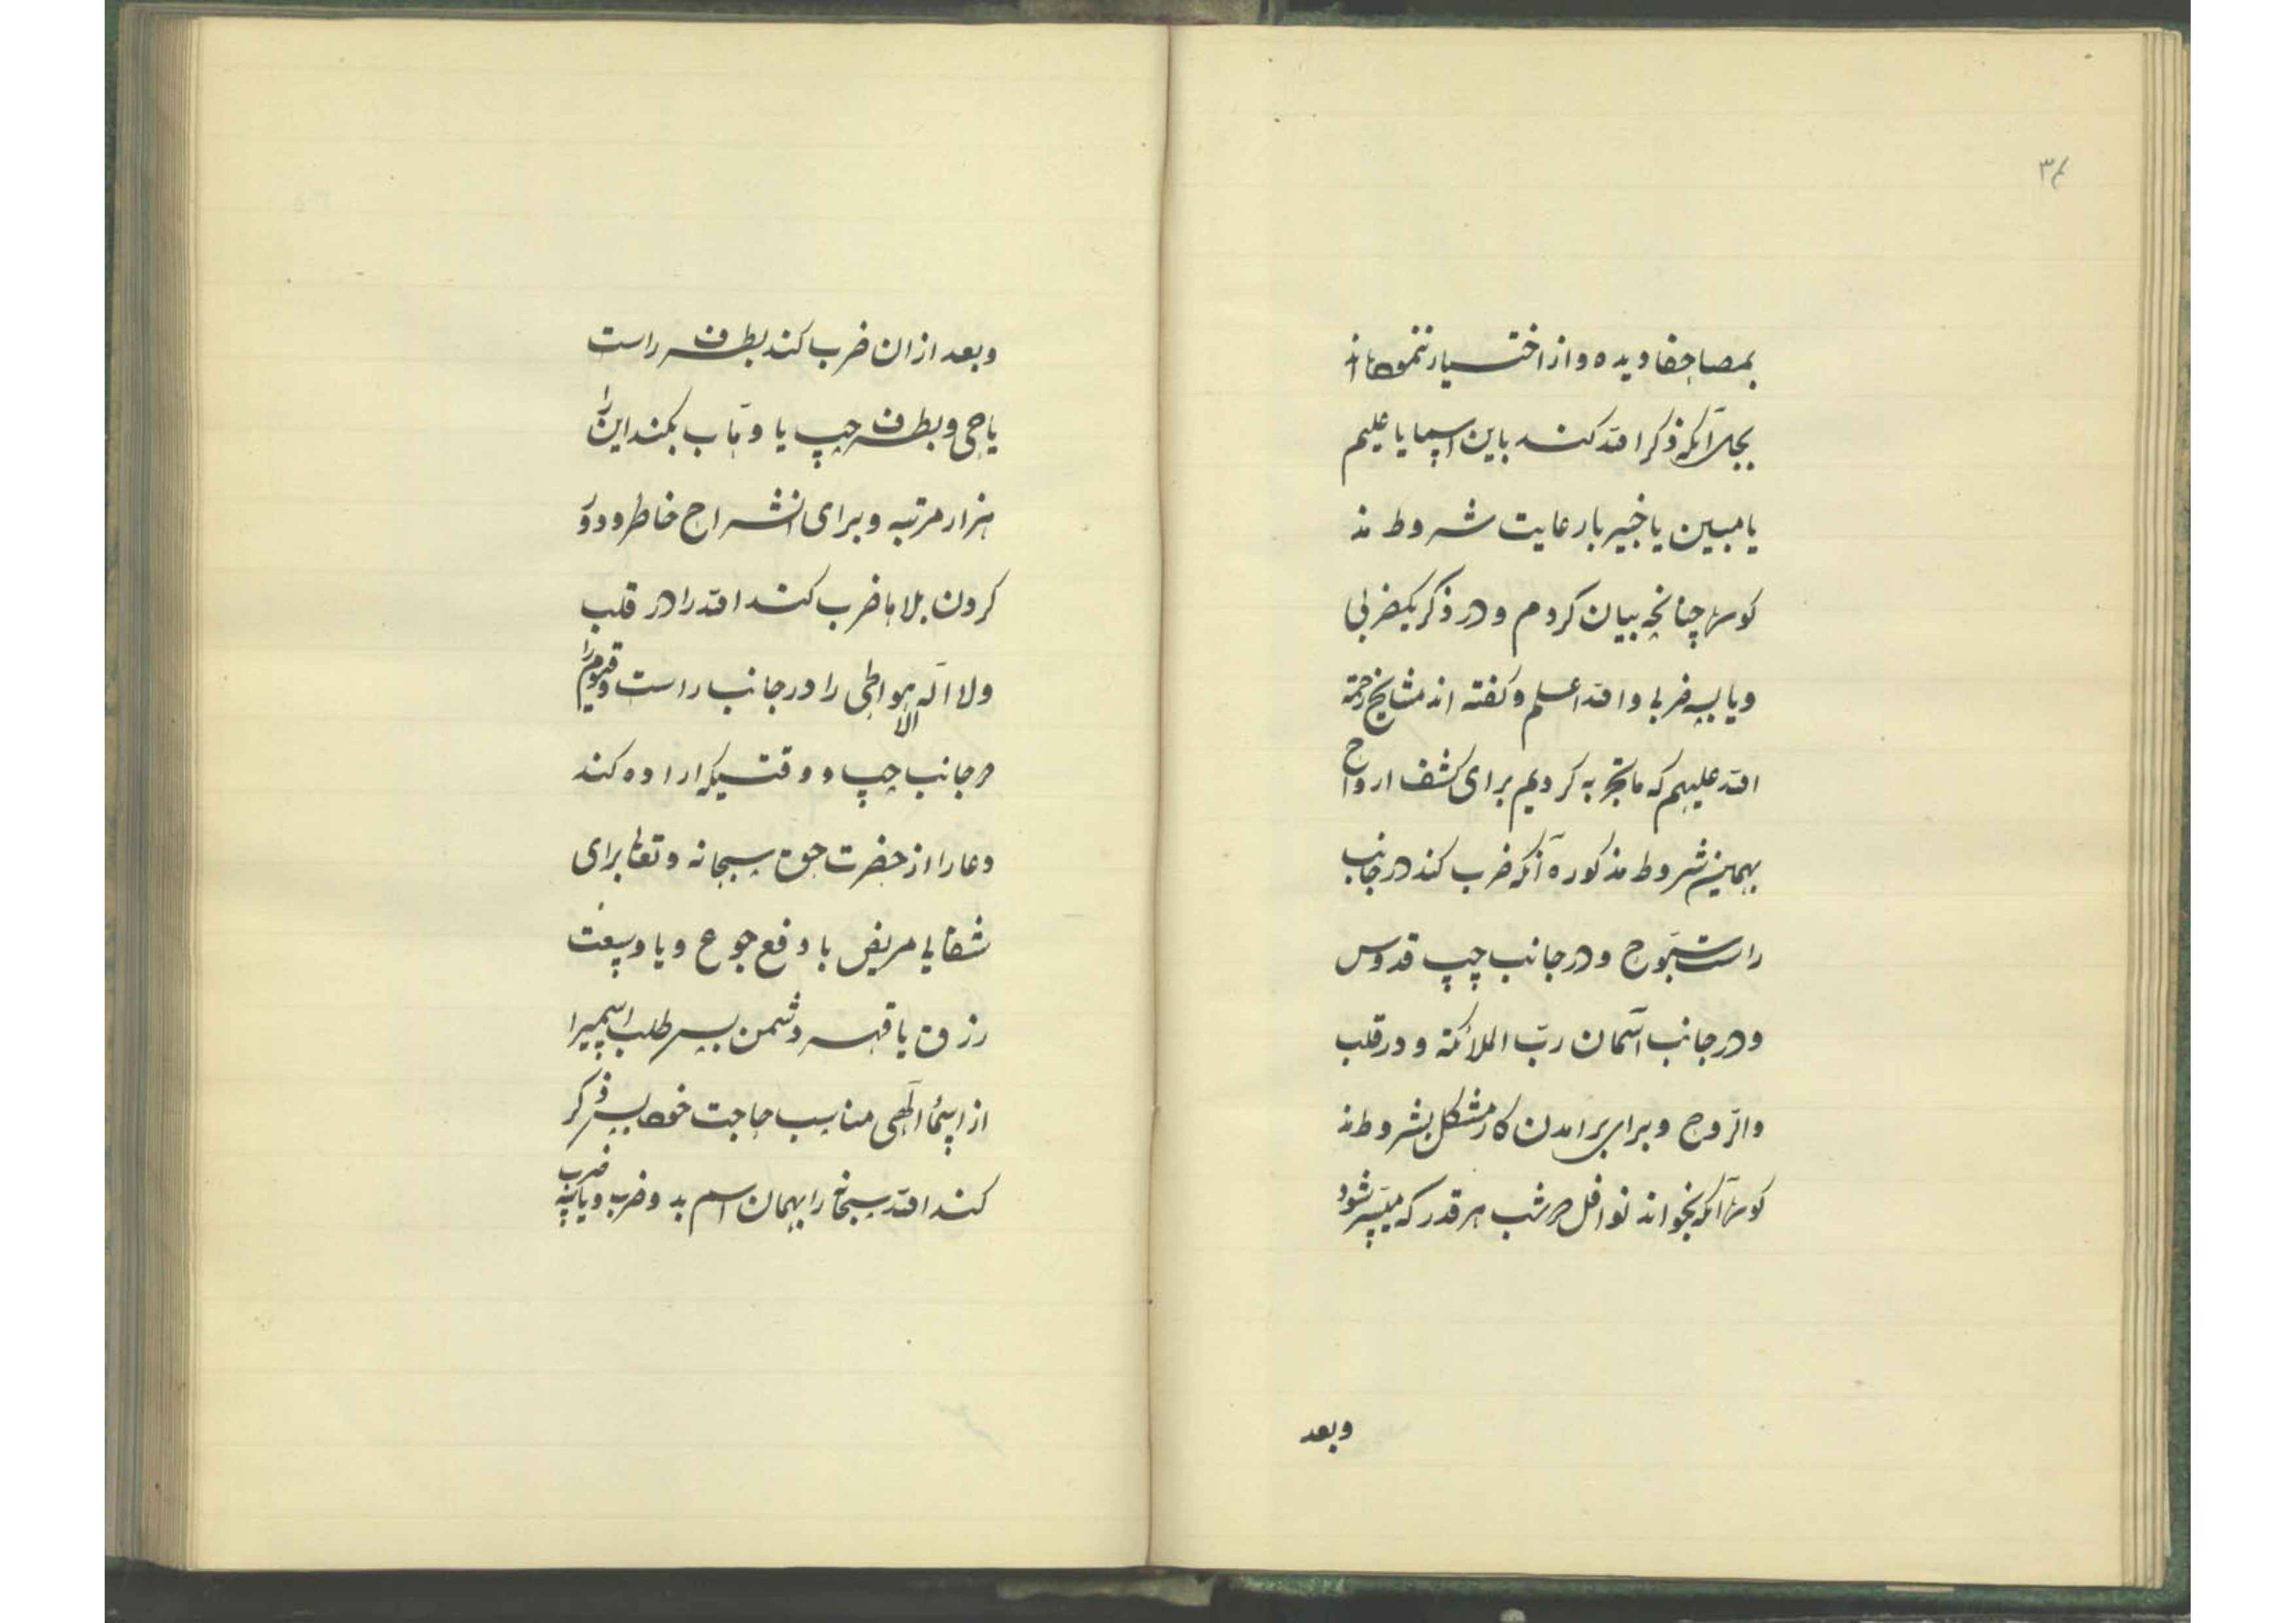 ۳۴
بمصاحفا ویده و از اختیار ننموده‌اند
بجلر آنکه ذکر الله کند باین اسما یا علیم
یا مبین یا خبیر با رعایت شروط مذ
کوره چنانچه بیان کردم و در ذکر یکضربی
و یا بسه ضربی والله اعلم و گفته اند مشایخ رحمة
الله علیهم که ما تجربه کردیم برای کشف ارواح
بهمین شروط مذکوره آنکه ضرب کند در جانب
راست سبّوح و در جانب چپ قدوس
و در جانب آسمان ربّ الملائکة و در قلب
والرّوح و برای برآمدن کار مشکل بشروط مذ
کوره آنکه بخواند نوافل در شب هر قدر که میسّر شود
وبعد
وبعد ازان ضرب کند بطرف راست
یا حی و بطرف چپ یا وهّاب بکند این را
هزار مرتبه و برای انشراح خاطر و دور
کردن بلاها ضرب کند الله را در قلب
ولا اله الا هو الحی را در جانب راست و قیوم را
در جانب چپ و وقتیکه اراده کند
دعا را از حضرت حق سبحانه و تعالی برای
شفای مریض یا دفع جوع و یا وسعت
رزق یا قهر دشمن پس طلب اسمیرا
از اسماء الهی مناسب حاجت خود پس ذکر
کند الله سبحانه را بهمان اسم بدو ضرب و یا بسه ضرب